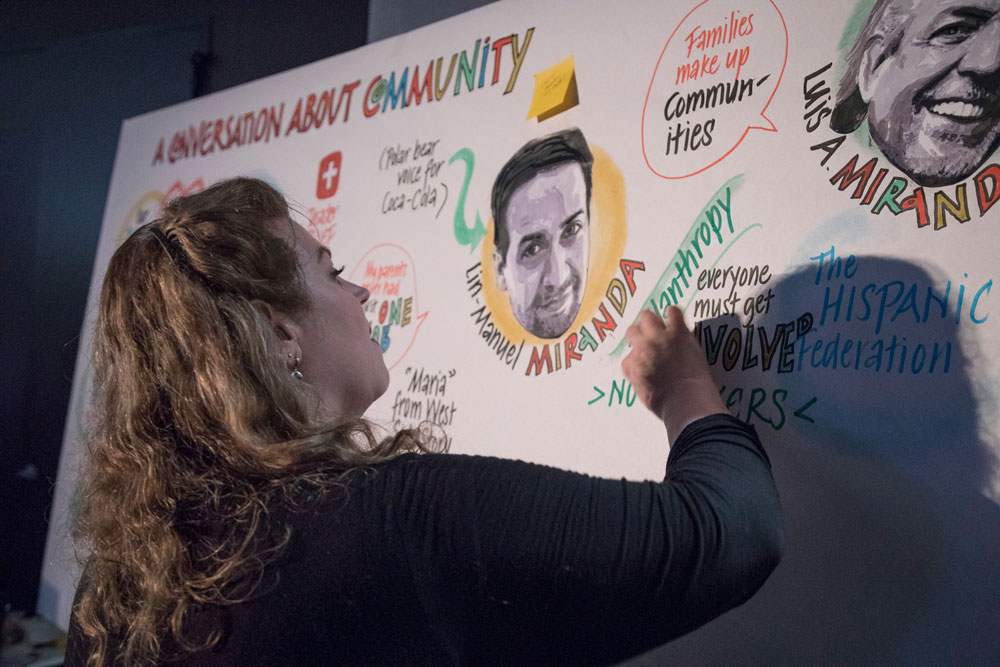 A CONVERSATION ABOUT COMMUNITY
Families
make up
Commun-
ities
LUiS A MIRANDA
(Polar bear
voice for
Coca-Cola)
Lin-Manuel MIRANDA
My parents
had
ONE
everyone
must get
INVOLVED
The
HISPANIC
Federation
"Maria"
from West
>NO ERS<